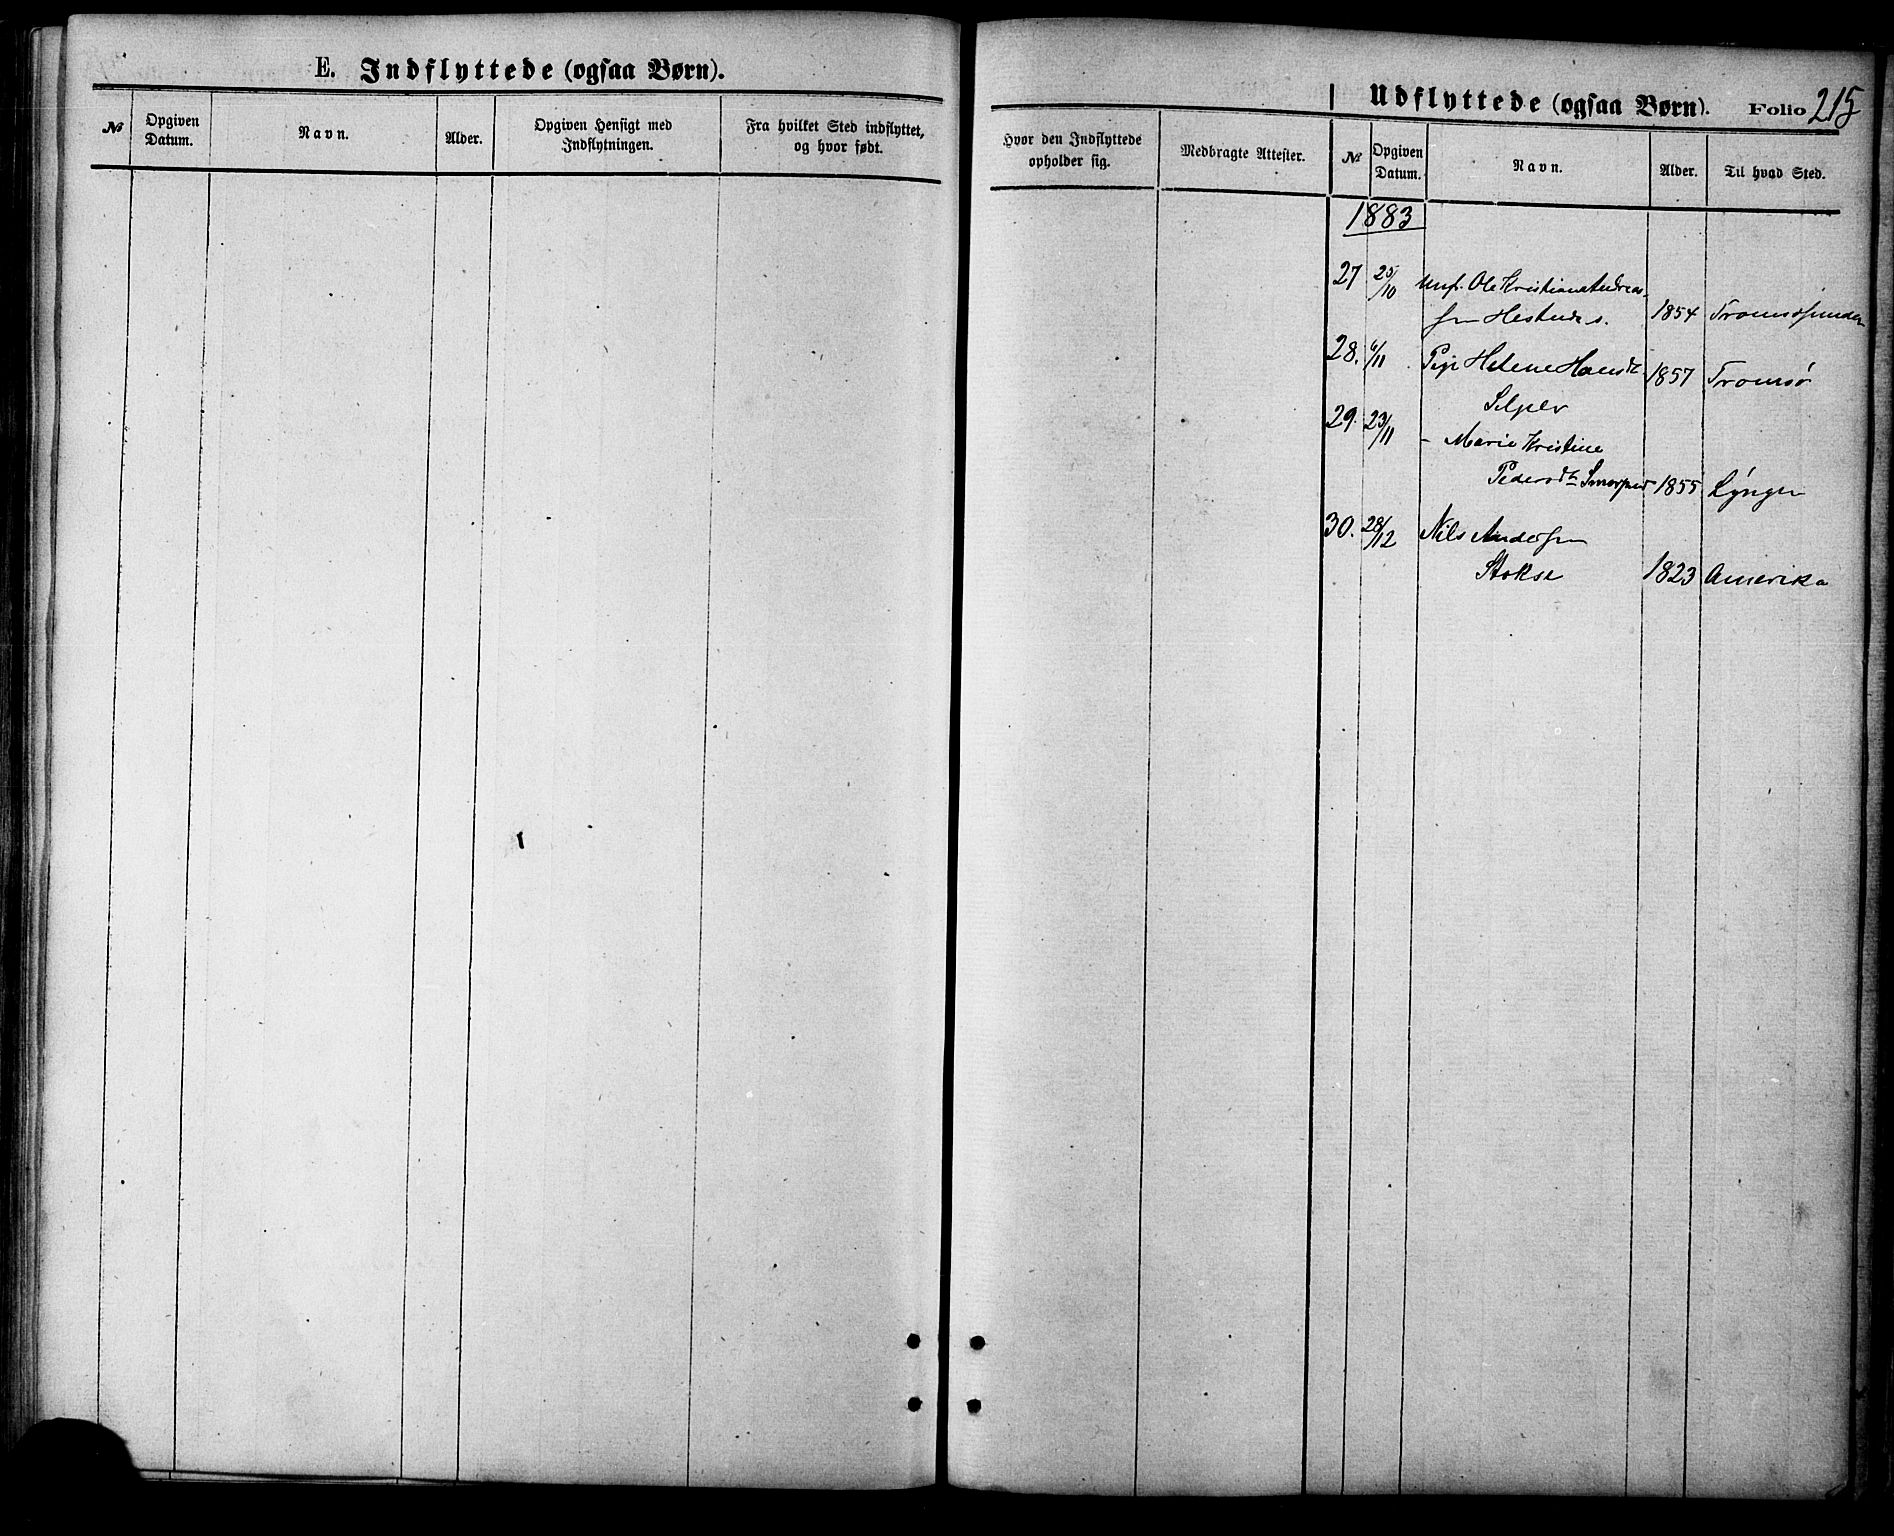 E. Indflyttede (ogsaa Børn).
№
Opgiven Datum.
Navn.
Alder.
Opgiven Hensigt med Indflytningen.
Fra hvilket Sted indflyttet, og hvor født.
Udflyttede (ogsaa Børn). Folio 215
Hvor den Indflyttede opholder sig.
Medbragte Attester.
№
Opgiven Datum.
Navn.
Alder.
Til hvad Sted.
1883
27 25/10 Ole Kristian Andreas-
sen 1854 Tromsøsundet
28. 6/11 Pige Helene Hansdt. 1857 Tromsø
29. 23/11 - Marie Kristine
Pedersdtr 1855 Lyngen
30. 28/12 Nils Andersen
Stokse 1823 Amerika